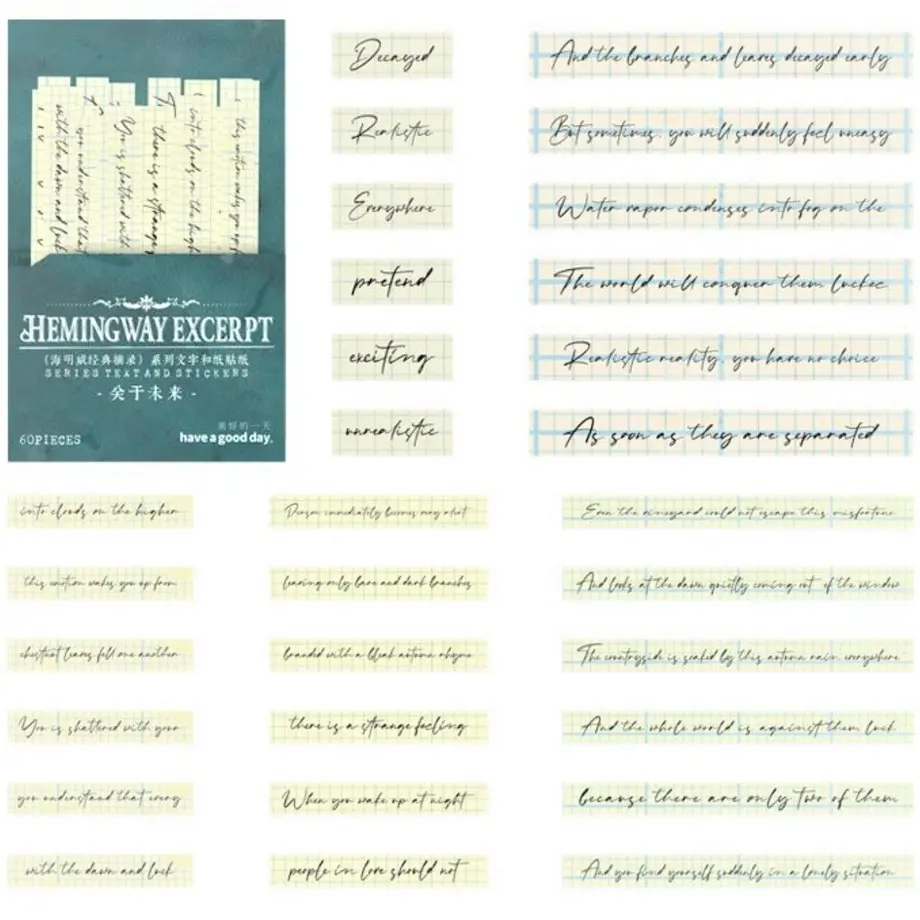 this emotion wakes you up fr
into clouds on the high
there is a strange
You is shattered with
you understand that
with the dawn and look
HEMINGWAY EXCERPT
《海明威经典摘录》系列文字和纸贴纸
SERIES TEXT AND STICKERS
- 关于未来 -
美好的一天
60PIECES
have a good day.
Decayed
And the branches and leaves decayed early
Realistic
But sometimes, you will suddenly feel uneasy
Everywhere
Water vapor condenses into fog on the
pretend
The world will conquer them lucked
exciting
Realistic reality, you have no choice
unrealistic
As soon as they are separated
into clouds on the higher
immediately becomes very
Even the vineyard could not escape this misfortune
this emotion wakes you up from
leaving only bare and dark branches
And looks at the dawn quietly coming out of the window
chestnut leaves fell one another
branded with a bleak autumn rhyme
The countryside is soaked by this autumn rain everywhere
You is shattered with your
there is a strange feeling
And the whole world is against them look
you understand that every
When you wake up at night
because there are only two of them
with the dawn and look
people in love should not
And you find yourself suddenly in a lonely situation